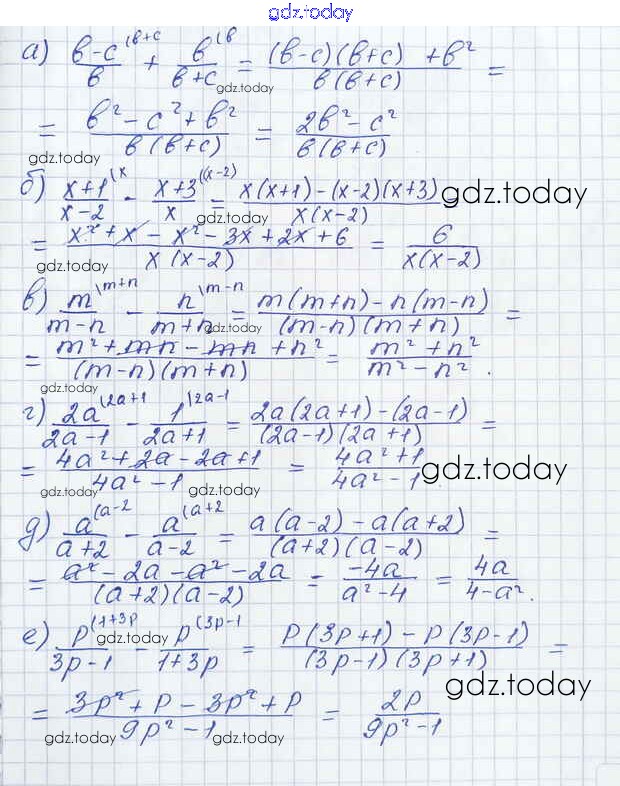 gdz.today
а) (в-с)/в \в+с + в/(в+с) \в = ((в-с)(в+с) + в²)/(в(в+с)) =
gdz.today
= (в² - с² + в²)/(в(в+с)) = (2в² - с²)/(в(в+с))
gdz.today
б) (x+1)/(x-2) \x - (x+3)/x \(x-2) = (x(x+1) - (x-2)(x+3))/(x(x-2)) =
gdz.today gdz.today
= (x² + x - x² - 3x + 2x + 6)/(x(x-2)) = 6/(x(x-2))
gdz.today
в) m/(m-n) \m+n - n/(m+n) \m-n = (m(m+n) - n(m-n))/((m-n)(m+n)) =
gdz.today
= (m² + mn - mn + n²)/((m-n)(m+n)) = (m² + n²)/(m² - n²).
gdz.today
г) 2a/(2a-1) \2a+1 - 1/(2a+1) \2a-1 = (2a(2a+1) - (2a-1))/((2a-1)(2a+1)) =
gdz.today
= (4a² + 2a - 2a + 1)/(4a² - 1) = (4a² + 1)/(4a² - 1)
gdz.today gdz.today gdz.today
д) a/(a+2) \a-2 - a/(a-2) \a+2 = (a(a-2) - a(a+2))/((a+2)(a-2)) =
gdz.today
= (a² - 2a - a² - 2a)/((a+2)(a-2)) = -4a/(a² - 4) = 4a/(4 - a²).
gdz.today
е) p/(3p-1) \1+3p - p/(1+3p) \3p-1 = (p(3p+1) - p(3p-1))/((3p-1)(3p+1)) =
gdz.today gdz.today
= (3p² + p - 3p² + p)/(9p² - 1) = 2p/(9p² - 1)
gdz.today gdz.today